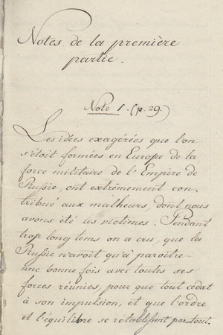 Notes de la première
partie.
Note 1. (p. 29.)
Les idées exagérées que l'on
s'était formées en Europe de la
force militaire de l'Empire de
Russie, ont extrêmement con-
tribué aux malheurs, dont nous
avons été les victimes. Pendant
trop long tems on a cru, que la
Russie n'avoit qu'à paroître
une bonne fois avec toutes ses
forces réunies pour que tout cédat
à son impulsion, et que l'ordre
et l'équilibre se rétablissent partout.